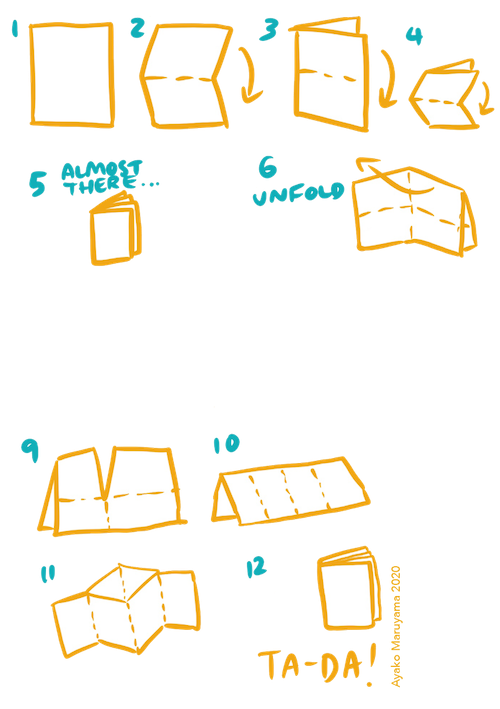 1
2
3
4
5
ALMOST
THERE...
6
UNFOLD
9
10
11
12
TA-DA!
Ayako Maruyama 2020